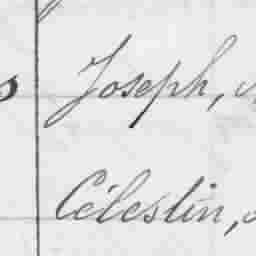 Joseph,
Célestin,